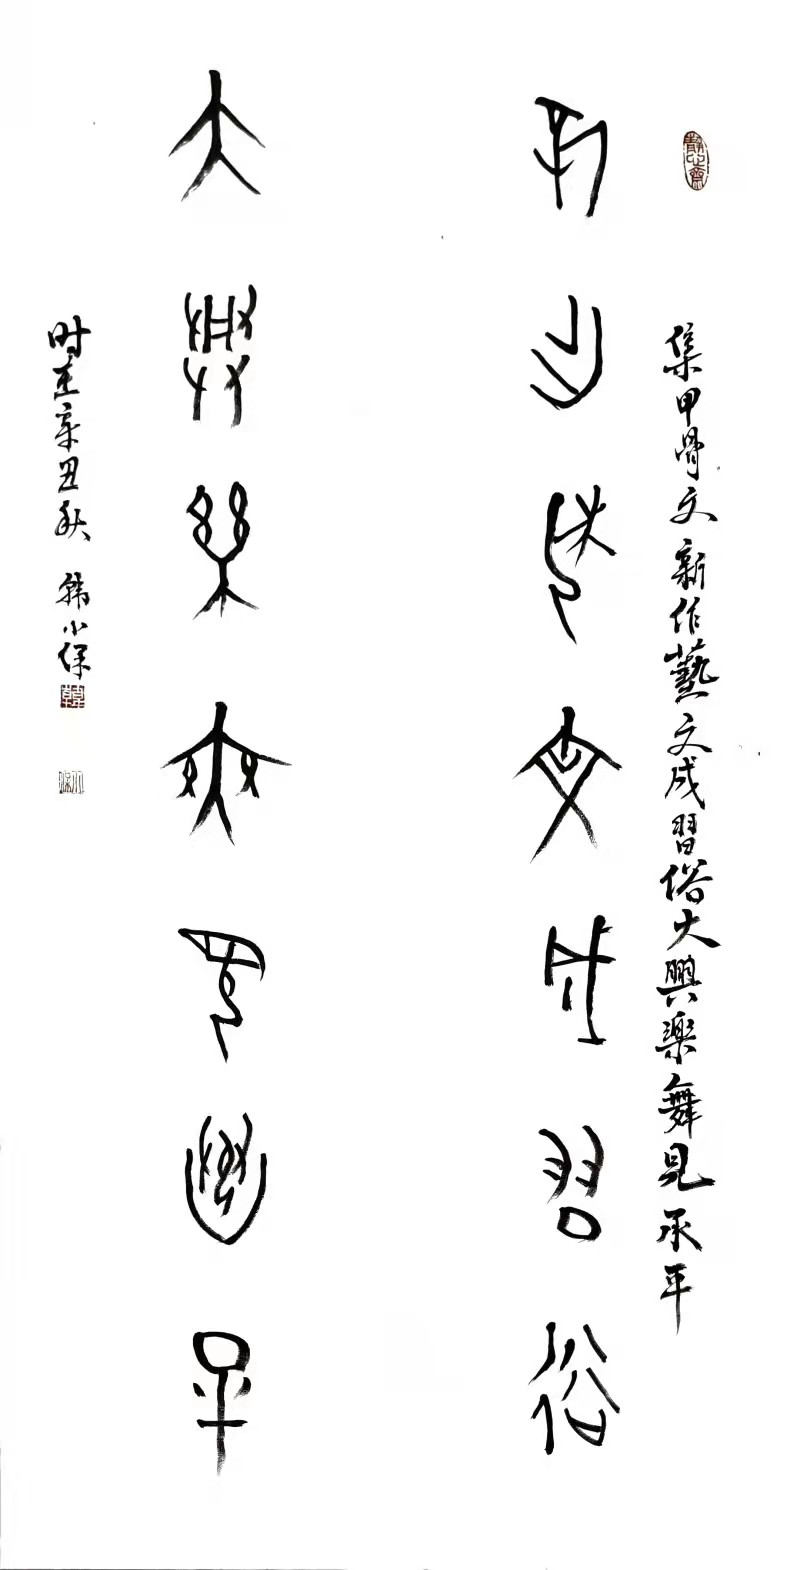 靜心齋
集甲骨文新作藝文成習俗大興樂舞見承平
新作藝文成習俗
大興樂舞見承平
时在辛丑秋 韓小保
韓
小保